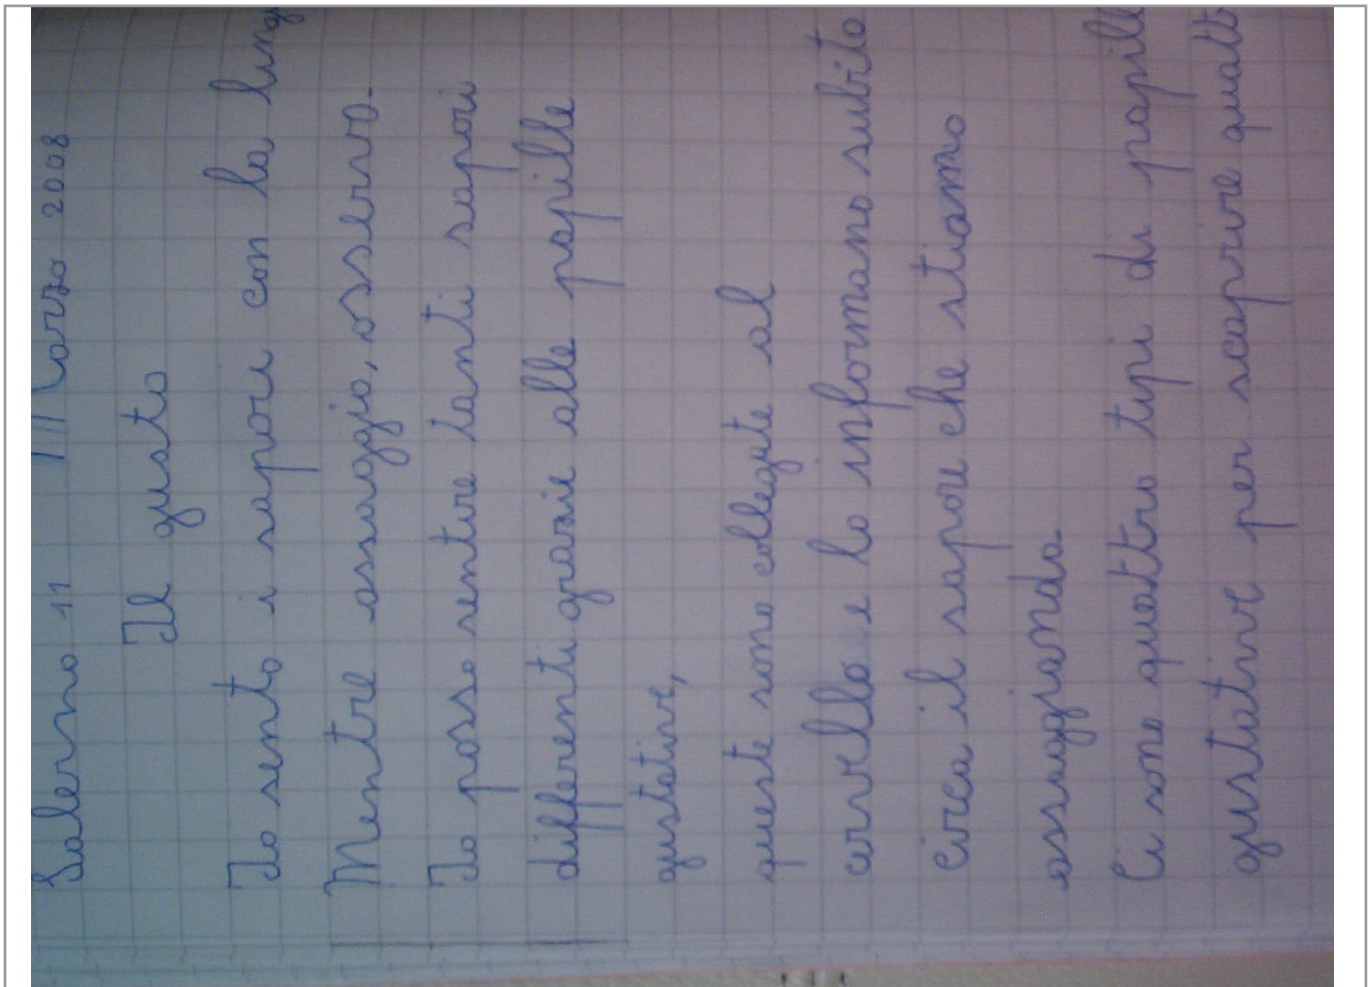 Salerno 11 Marzo 2008
Il gusto
Io sento i sapori con la ling
Mentre assaggio, osservo.
Io posso sentire tanti sapori
differenti grazie alle papille
gustative,
queste sono collegate al
cervello e lo informano subito
circa il sapore che stiamo
assaggiando.
Ci sono quattro tipi di papill
gustative per scoprire quatt